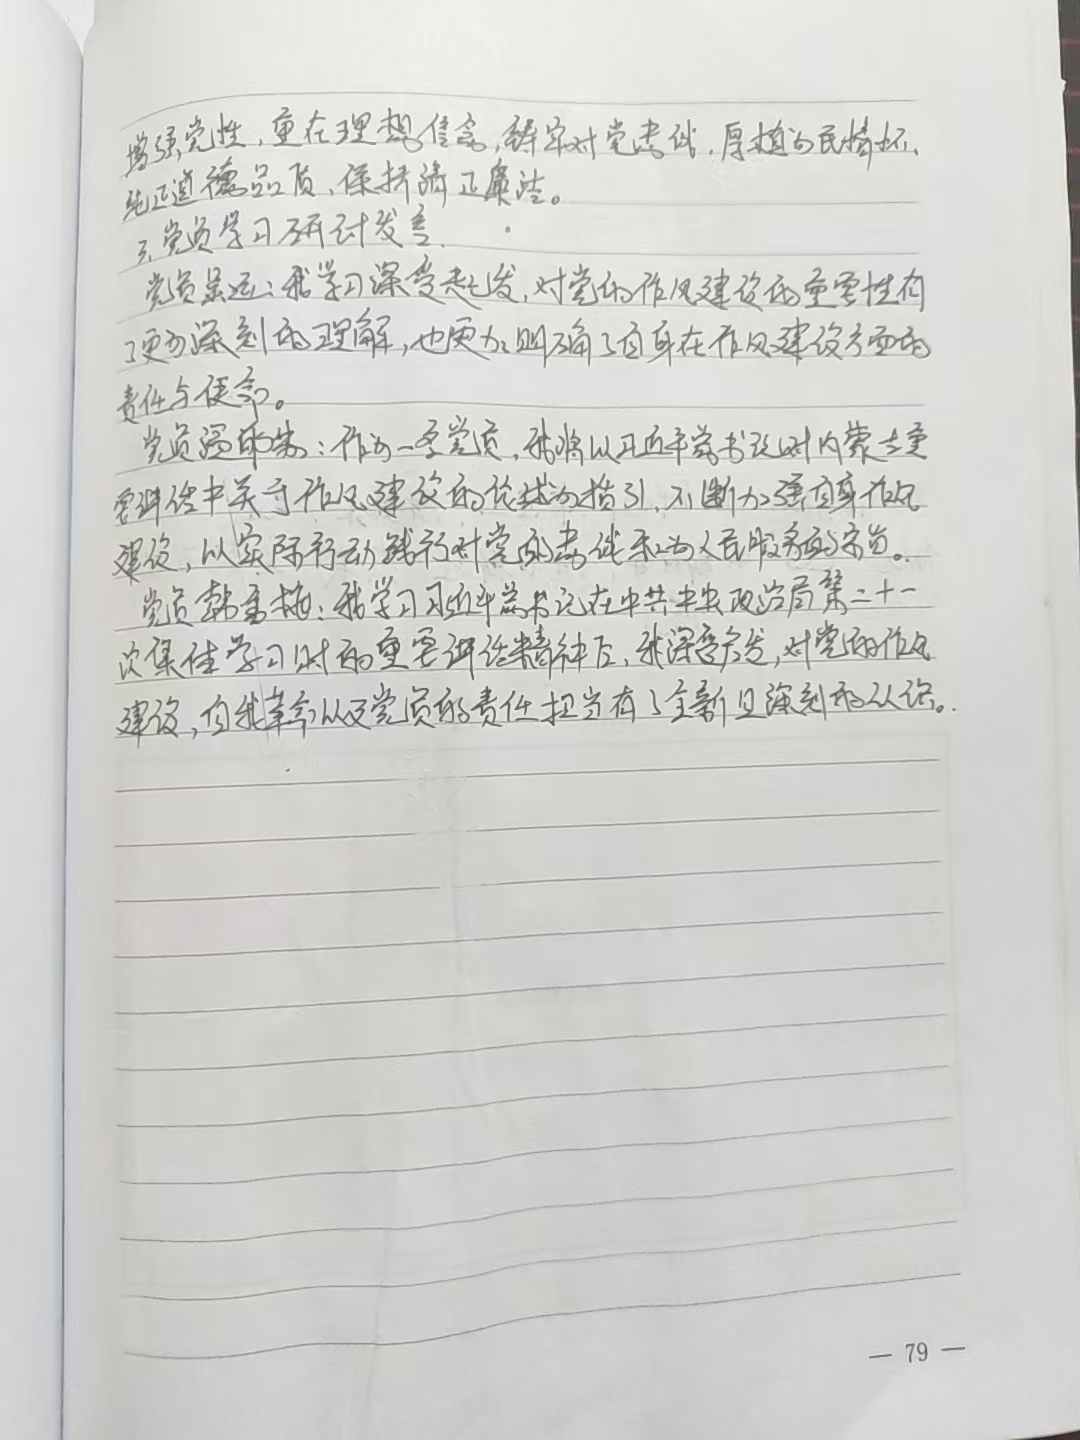 增强党性，重在理想信念，铸牢对党忠诚，厚植为民情怀、
纯正道德品质、保持清正廉洁。
三、党员学习研讨发言
党员：我学习深受启发，对党的作风建设的重要性有
了更为深刻的理解，也更加明确了自身在作风建设方面的
责任与使命。
党员：作为一名党员，我将以习近平总书记对内蒙古重
要讲话中关于作风建设的论述为指引，不断加强自身作风
建设，以实际行动践行对党的忠诚和为人民服务的宗旨。
党员韩梅：我学习习近平总书记在中共中央政治局第二十一
次集体学习时的重要讲话精神后，我深受启发，对党的作风
建设，自我革命以及党员的责任担当有了全新且深刻的认识。
— 79 —